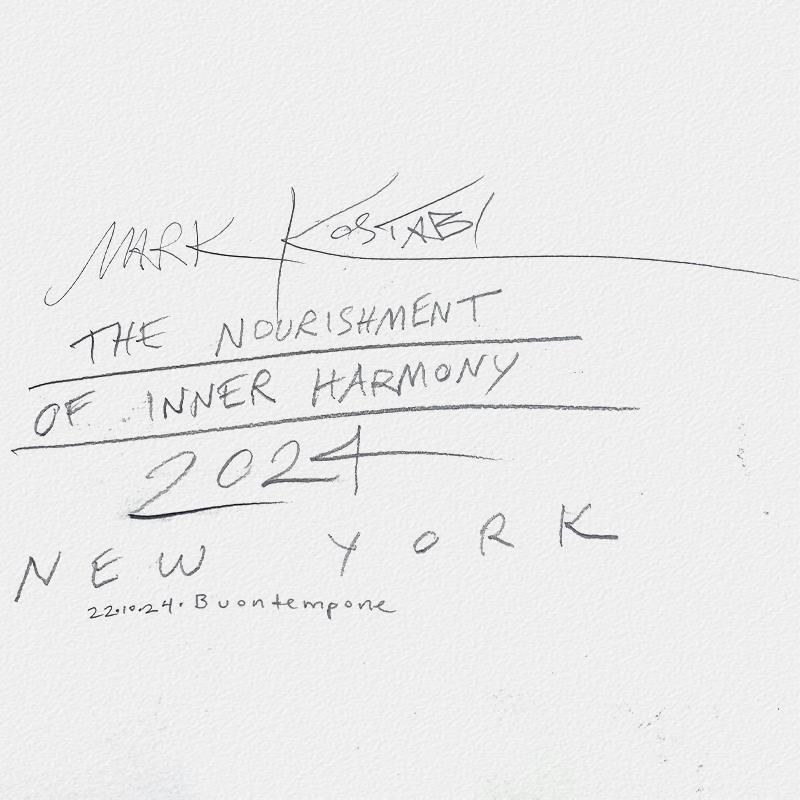 MARK KOSTABI
THE NOURISHMENT
OF INNER HARMONY
2024
NEW YORK
22.10.24. Buontempone